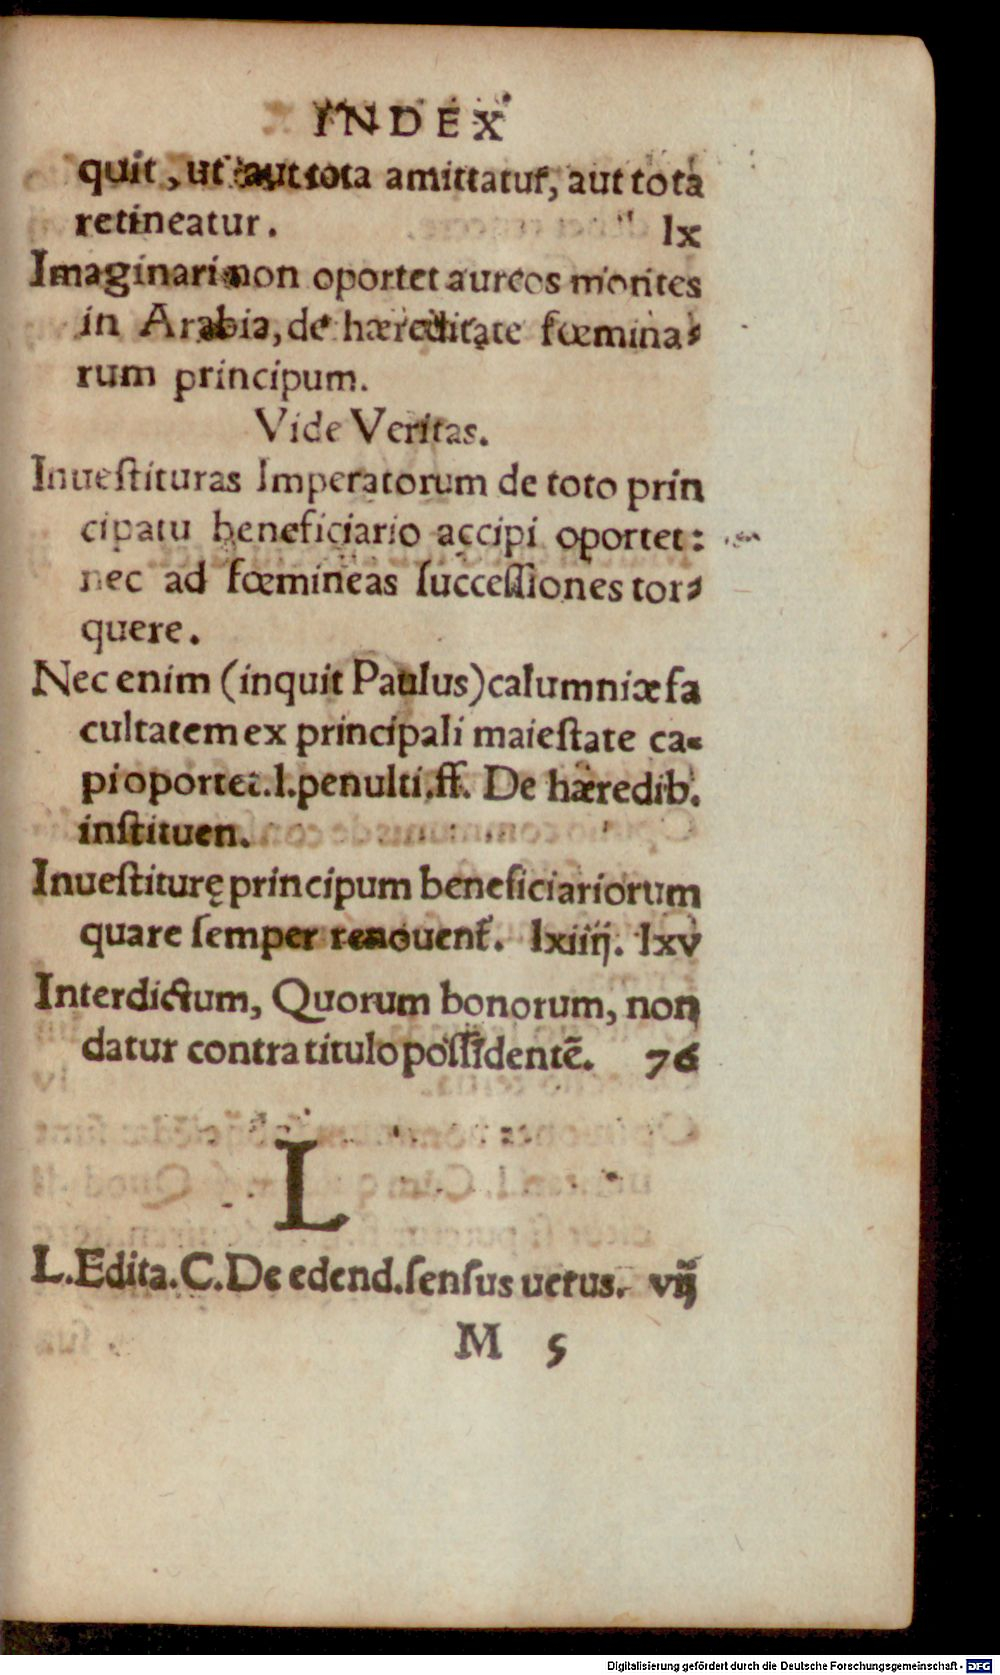 INDEX
quit, ut aut tota amittatur, aut tota
retineatur. lx
Imaginari non oportet aureos montes
in Arabia, de hæreditate fœmina⸗
rum principum.
Vide Veritas.
Inueſtituras Imperatorum de toto prin
cipatu beneficiario accipi oportet:
nec ad fœmineas ſucceſſiones tor⸗
quere.
Nec enim (inquit Paulus) calumniæ fa
cultatem ex principali maieſtate ca⸗
pi oportet. l. penulti. ff. De hæredib.
inſtituen.
Inueſtiturę principum beneficiariorum
quare ſemper renouent̃. lxiiij. lxv
Interdictum, Quorum bonorum, non
datur contra titulo poſſidentē. 76
L
L. Edita. C. De edend. ſenſus uetus. vij
M 5
Digitalisierung gefördert durch die Deutsche Forschungsgemeinschaft - DFG